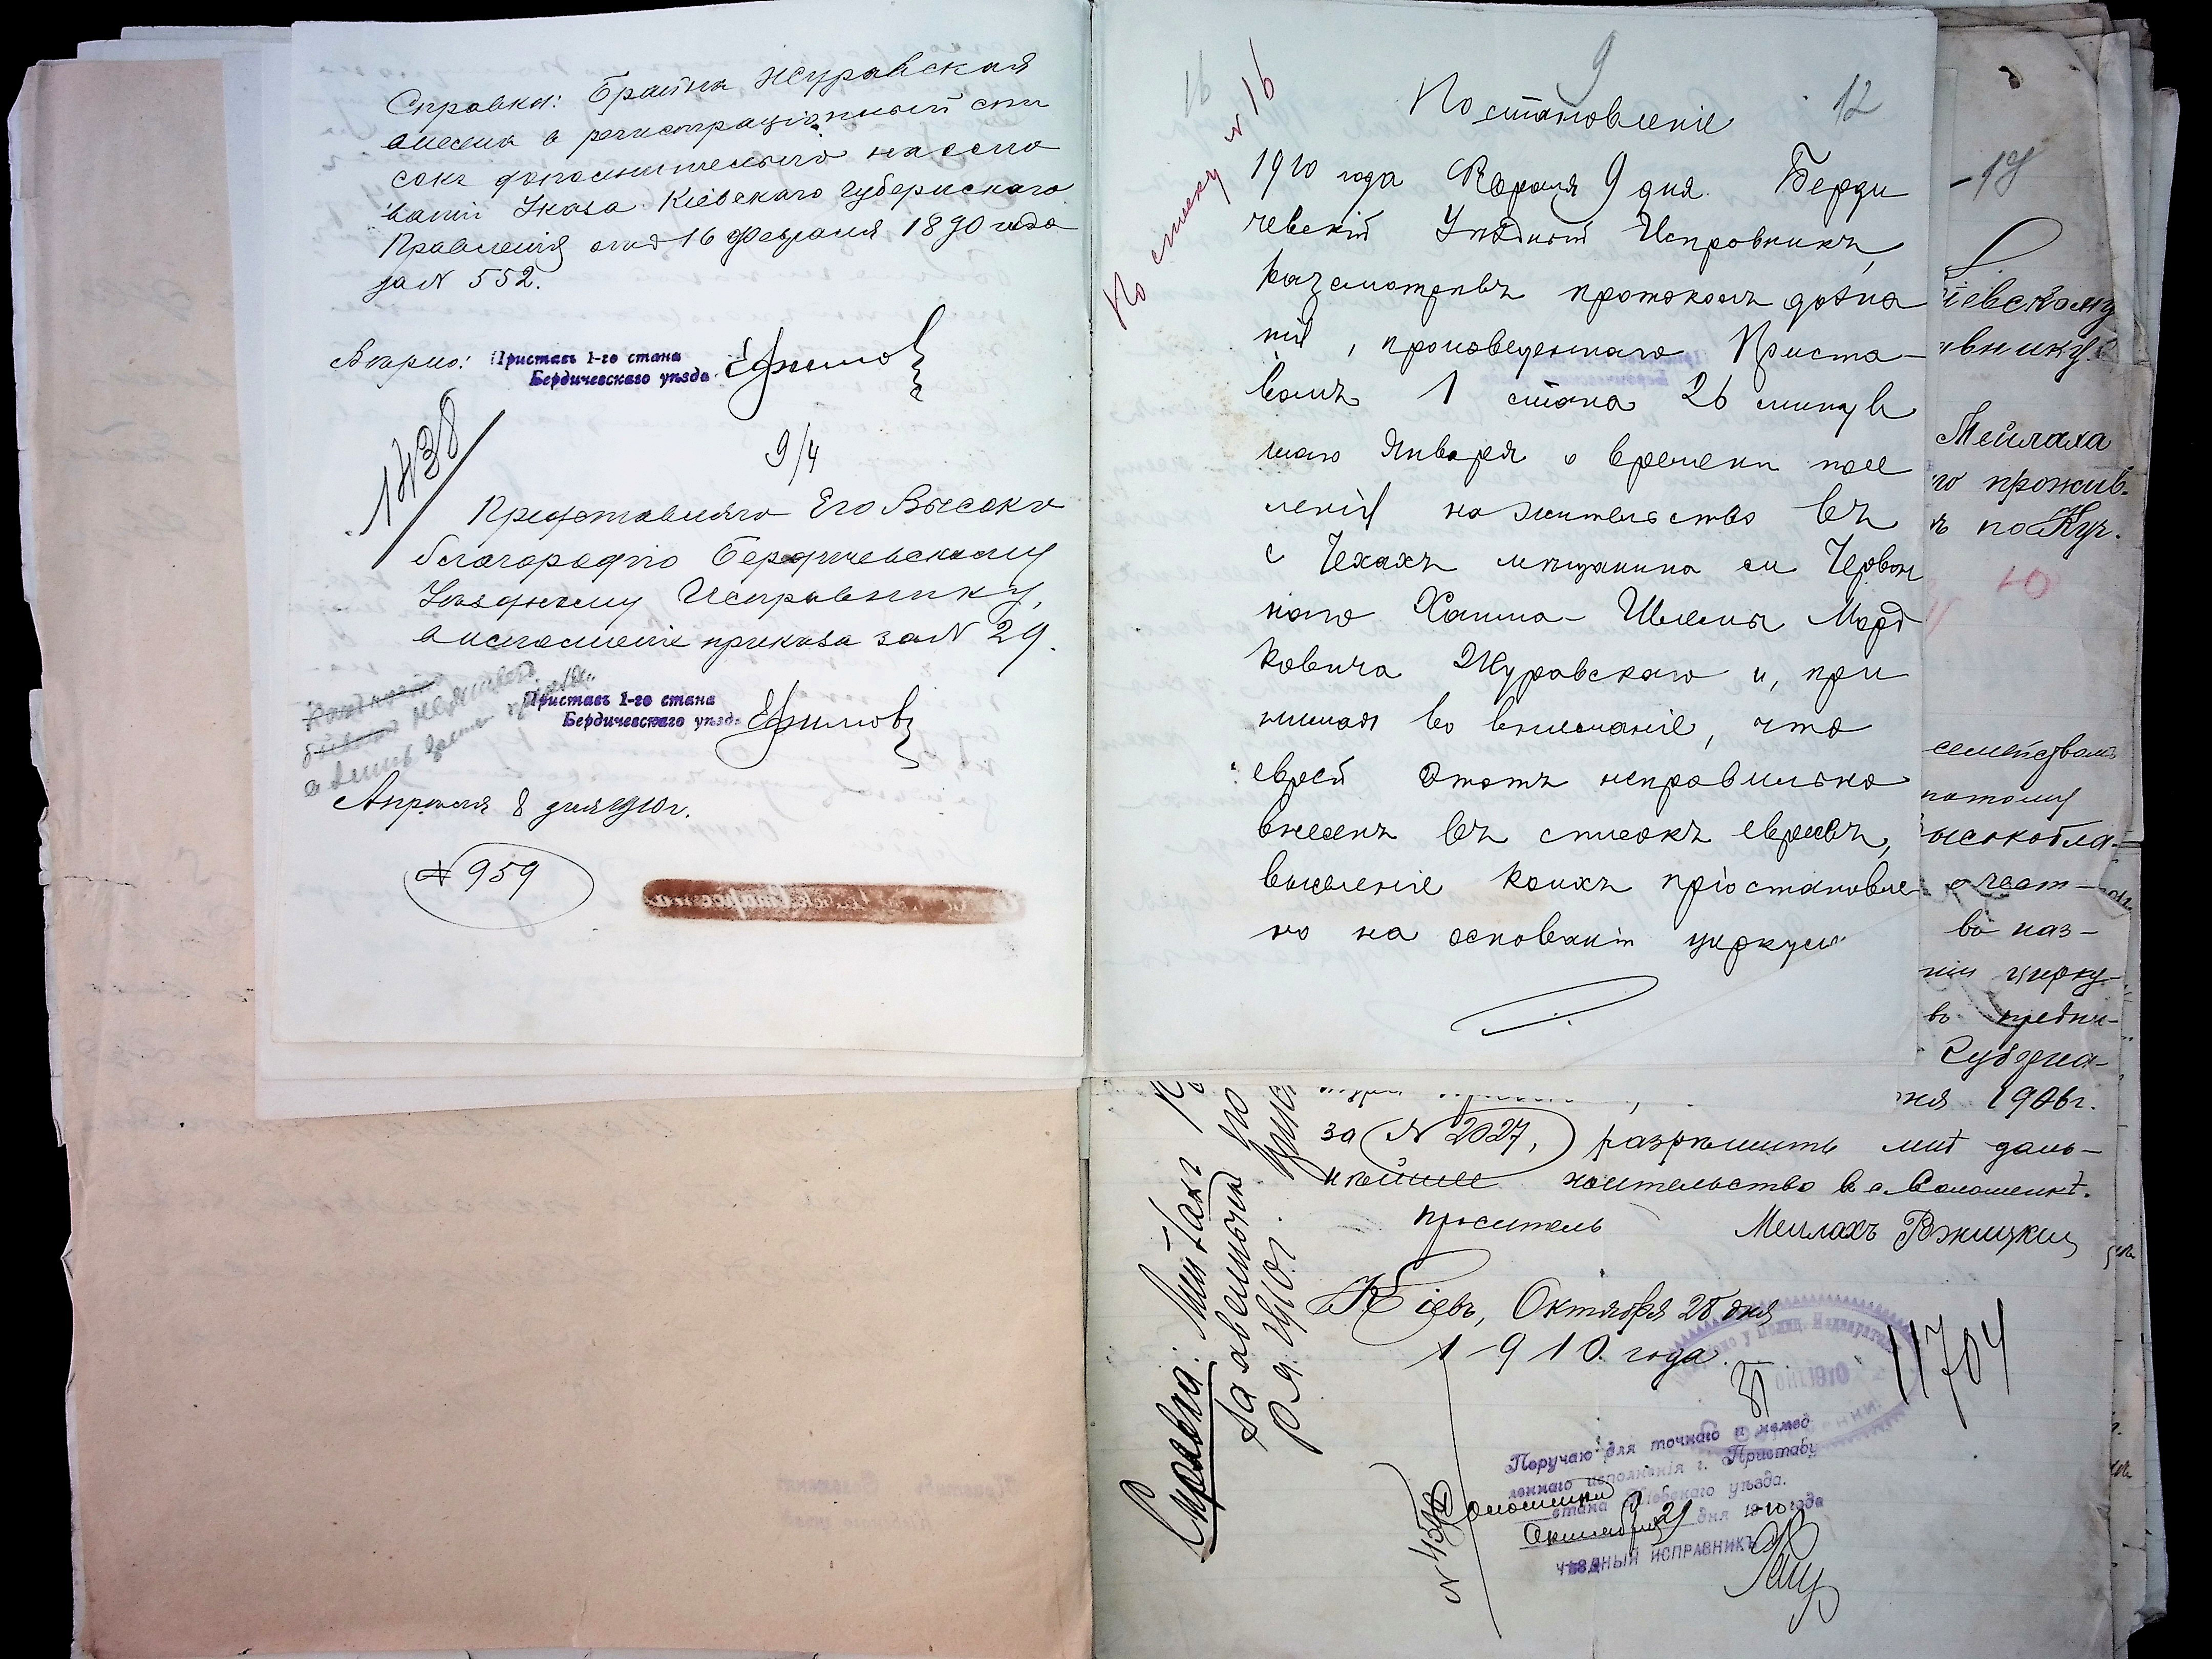 Справка: Брайна Журавская
внесена в регистраціонный спи
сокъ дополнительно на осно
ваніи Указа Кіевскаго Губернскаго
Правленія отъ 16 Февраля 1890 года
за N 552.
Вѣрно: Приставъ 1-го стана
Бердичевскаго уѣзда Ефимов
1438
9/4
Представляю Его Высоко
благородію Бердичевскому
Уѣздному Исправнику,
во исполненіе приказа за N 29.
Приставъ 1-го стана
Бердичевскаго уѣзда Ефимовъ
Апрѣля 8 дня 1910 г.
N 959
16
По списку N 16
9
12
Постановленіе
1910 года Февраля 9 дня. Берди
чевскій Уѣздный Исправникъ,
разсмотрѣвъ протоколъ дозна
нія, произведеннаго Приста-
вомъ 1 стана 26 минув
шаго Января о времени посе
ленія на жительство въ
с Чехахъ мѣщанина м Червон
наго Хаима-Шлемы Морд
ковича Журавскаго и, при
нимая во вниманіе, что
еврей этотъ неправильно
внесенъ въ списокъ евреевъ,
выселеніе коихъ пріостановле
но на основаніи циркуля
17
Кіевскому
Мейлаха
прожив.
по Куч.
10
семействомъ
потому
ысокобла-
ва наз-
цирку-
предпи-
Губерна-
1906 г.
за N 2027, разрѣшить мнѣ даль-
нѣйшее жительство в с. Соломенкѣ.
проситель Меилахъ Ружицкий
Кіевъ, Октября 28 дня
1910 года.
31
11704
Справка:
Заявленія
1910 г.
Поручаю для точнаго и немед
леннаго исполненія г. Приставу
Соломенки стана Кіевскаго уѣзда.
Октября 31 дня 1910 года
УѢЗДНЫЙ ИСПРАВНИКЪ